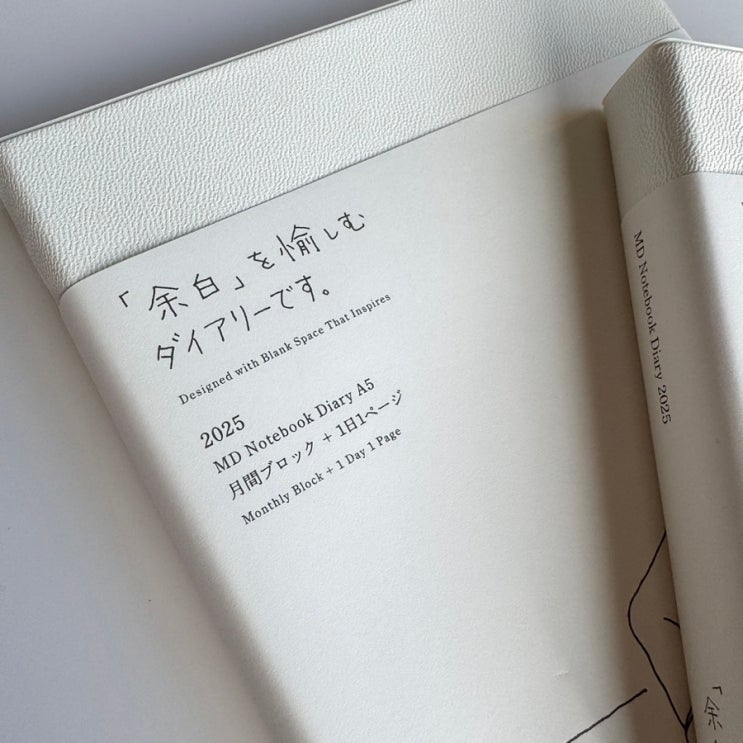 「余白」を愉しむ
ダイアリーです。
Designed with Blank Space That Inspires
2025
MD Notebook Diary A5
月間ブロック + 1日1ページ
Monthly Block + 1 Day 1 Page
MD Notebook Diary 2025
「余